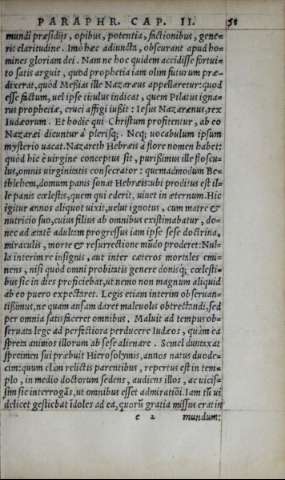 PARAPHR. CAP. II. 58
mundi præsidijs, opibus, potentia, factionibus, gene-
ris claritudine. Imò hæc adiuncta, obscurant apud ho-
mines gloriam dei. Nam ne hoc quidem accidisse fortui-
to satis arguit, quòd prophetia iam olim futurum præ-
dixerat, quòd Messias ille Nazaræus appellaretur: quod
esse factum, uel ipse titulus indicat, quem Pilatus igna-
rus prophetiæ, cruci affigi iußit: Iesus Nazarænus, rex
Iudæorum. Et hodie qui Christum profitentur, ab eo
Nazaræi dicuntur à plerisq;. Neq; uocabulum ipsum
mysterio uacat. Nazareth Hebræis à flore nomen habet:
quòd hic è uirgine conceptus sit, purißimus ille floscu-
lus, omnis uirginitatis consecrator: quemadmodum Be-
thlehem, domum panis sonat Hebræis: ubi proditus est il-
le panis cœlestis, quem qui ederit, uiuet in æternum. Hic
igitur annos aliquot uixit, uelut ignotus, cum matre &
nutricio suo, cuius filius ab omnibus existimabatur, do-
nec ad ætatē adultam progressus iam ipse sese doctrina,
miraculis, morte & resurrectione mūdo proderet: Nul-
la interim re insignis, aut inter cæteros mortales emi-
nens, nisi quòd omni probitatis genere donisq; cœlesti-
bus sic in dies proficiebat, ut nemo non magnum aliquid
ab eo puero expectaret. Legis etiam interim obseruan-
tißimus, ne quam ansam daret maleuolis obtrectandi, sed
per omnia satisficeret omnibus. Maluit ad tempus ob-
seruata lege ad perfectiora perducere Iudæos, quàm ea
spreta animos illorum ab sese alienare. Semel duntaxat
specimen sui præbuit Hierosolymis, annos natus duode-
cim: quum clàm relictis parentibus, repertus est in tem-
plo, in medio doctorum sedens, audiens illos, ac uicis-
sim sic interrogās, ut omnibus esset admirationi. Iam tū ui
delicet gestiebat idoles ad ea, quorū gratia missus erat in
e 2 mundum: